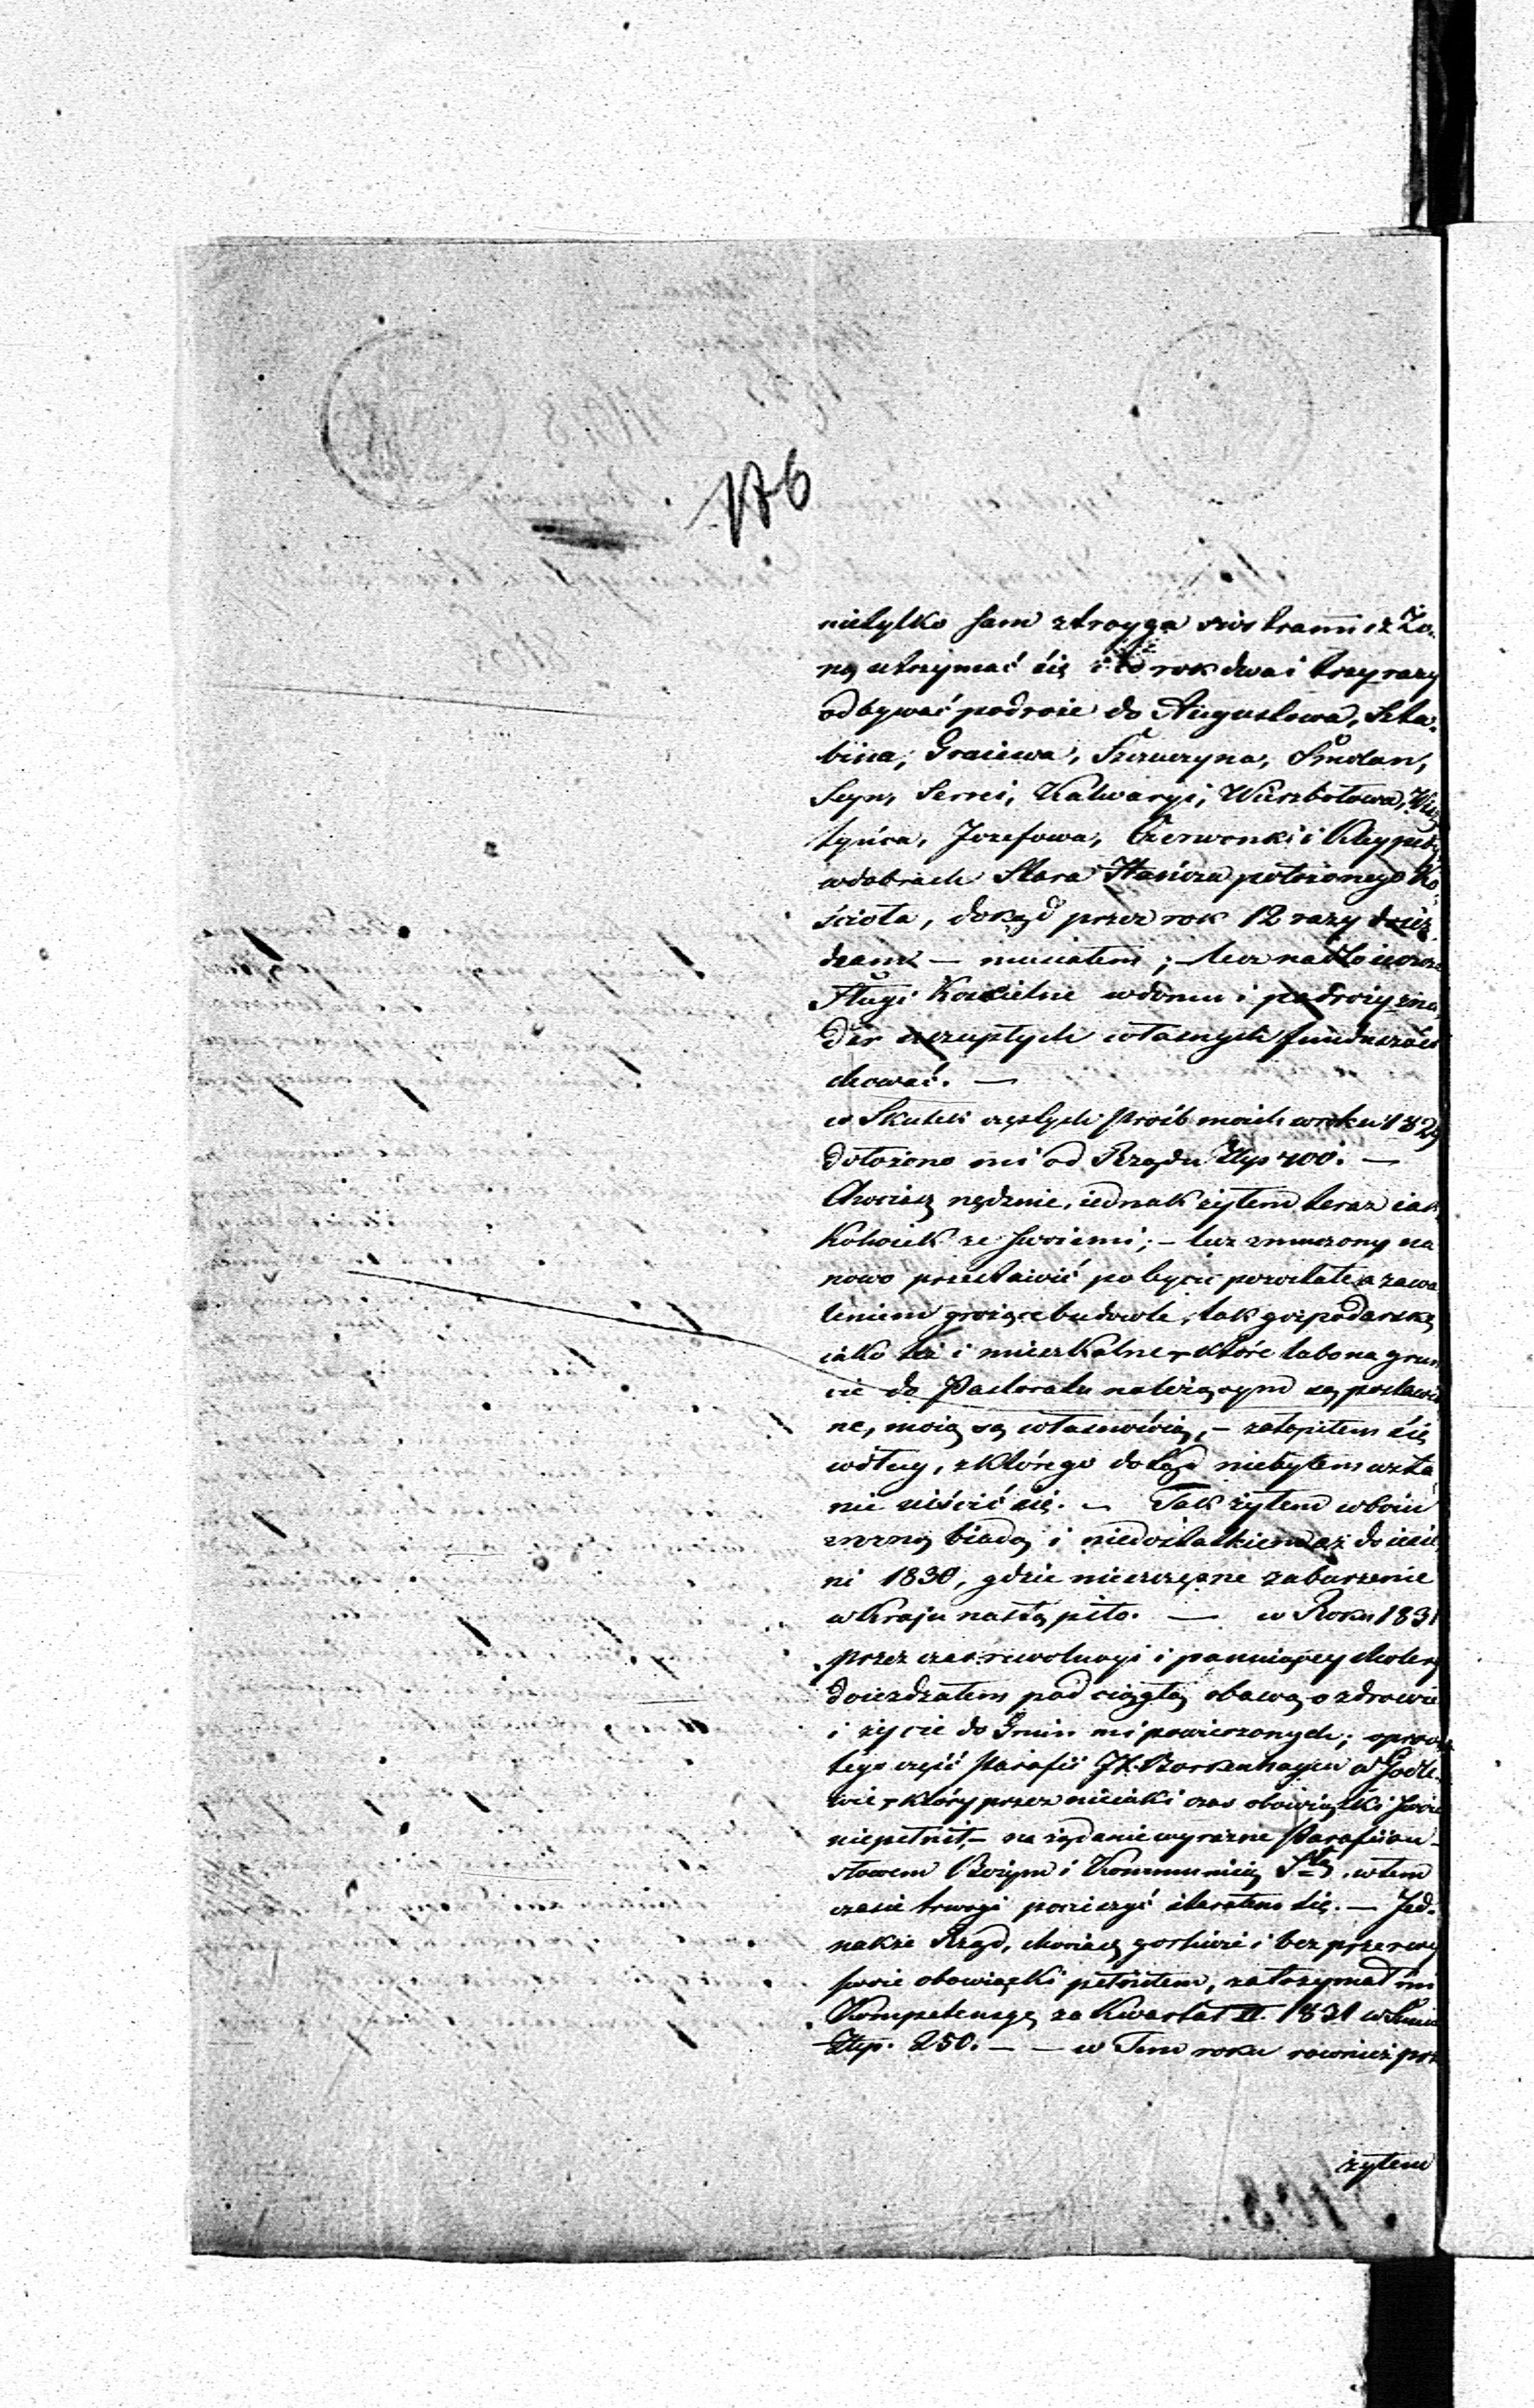 176
nietylko sam z troyga siostrami i z Żo-
ną utrzymać się i co rok dwa i trzy razy
odbywać podroie do Augustowa, Szta-
bina, Graiewa, Szczuczyna, Smolan,
Seyn, Serrei, Kalwaryi, Wierzbołowa,
tyńca, Jozefowa, Czerwonki i
w dobrach Stara Hańcza położonego Ko-
ścioła, dokąd przez rok 12 razy
 — musiałem; — lecz nadto ieszcze
Sługi Kościelne w domu i
 szczupłych własnych funduszów
chować. —
w Skutek częstych prośb moich w roku 1829
dołożono mi od Rządu Złp 400. —
Chociaż nędznie, iednak żyłem teraz iak
kolwiek ze swoiemi; — lecz zmuszony na
nowo przestawić po byciu pozostałe a zawa
leniem grożące budowle, tak gospodarskie
iako też i mieszkalne, które lubo na grun
cie do Pastoratu należącym są postawio
ne, moią są własnością, — zatopiłem się
w długi, z którego dotąd niebyłem w sta-
nie uiścić się. — Tak żyłem w boiu
z nędzną biedą i niedostatkiem aż do iesie
ni 1830, gdzie nieszczęsne zaburzenie
w Kraju nastąpiło. — w Roku 1831
przez czas rewolucyi i panuiącey cholery
doieżdzałem pod ciągłą obawą o zdrowie
i życie do Gmin mi powierzonych; oprócz
tego część Parafii JX. Borkenhagen w Godle-
wie, który przez nieiaki czas obowiązki swoie
niepełnił, — na żądanie wyraźne Parafiian
słowem Bożym i Kommunią Stą w tem
czasie trwogi pocieszyć starałem się. — Jed-
nakże Rząd, chociaż gorliwie i bez przerwy
swoie obowiązki pełniłem, zatrzymał mi
Kompetencyą za Kwartał II. 1831 w Sumie
Złp. 250. — — w Tem roku rownież prze
żyłem